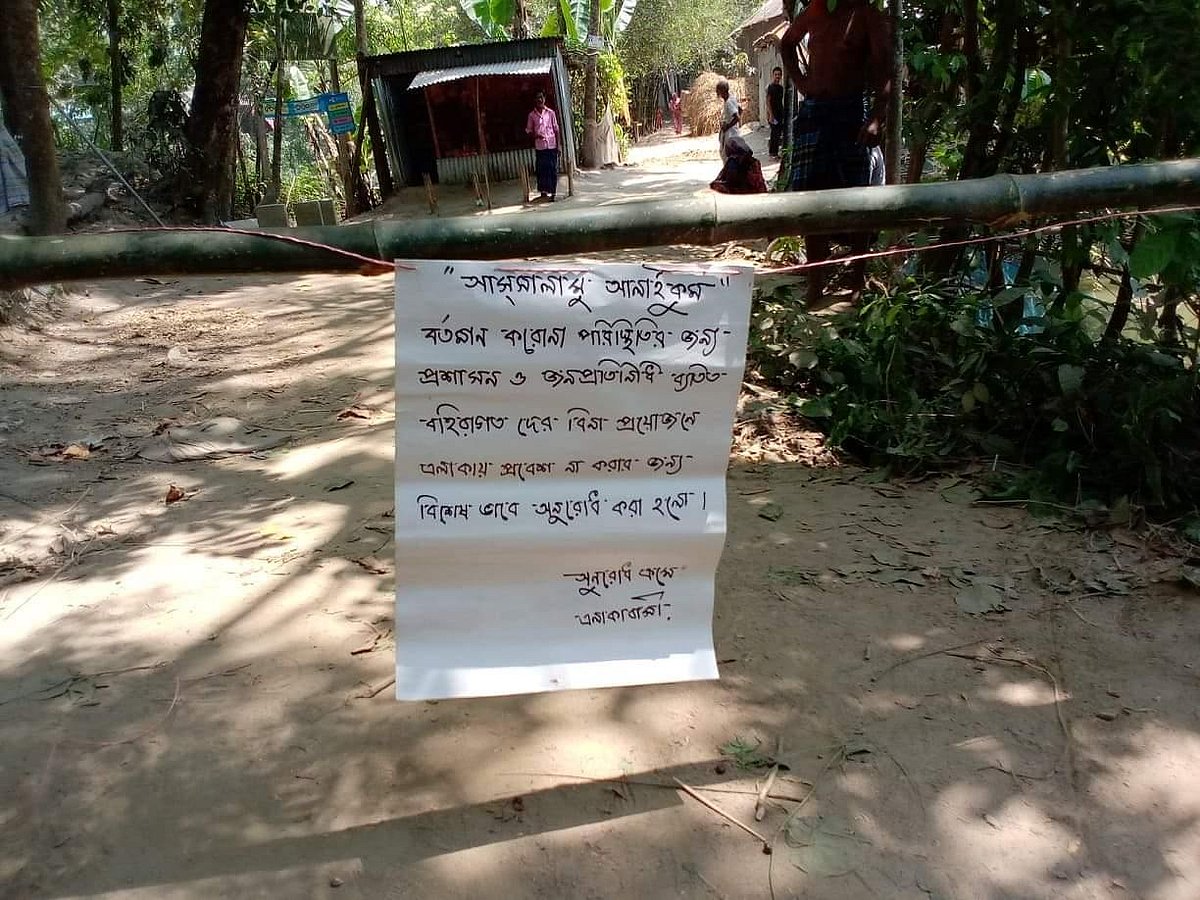 "আস্সালামু আলাইকুম"
বর্তমান করোনা পরিস্থিতির জন্য
প্রশাসন ও জনপ্রতিনিধী ব্যতিত
বহিরাগত দের বিনা প্রয়োজনে
এলাকায় প্রবেশ না করার জন্য
বিশেষ ভাবে অনুরোধ করা হলো।
অনুরোধ ক্রমে
এলাকাবাসী.